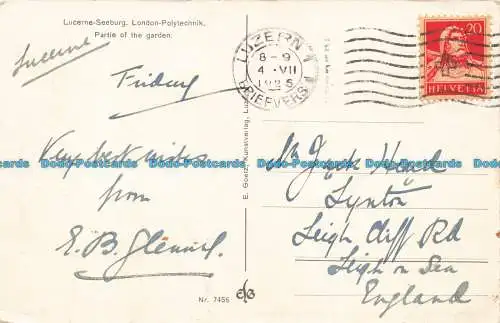 Lucerne-Seeburg. London-Polytechnik.
Partie of the garden.
Lucerne
Friday
Very best wishes
from
E. B. Glennie
E. Goetz, Kunstverlag, Lu
Nr. 7456
EG
LUZERN 1
8-9
4 VII
BRIEFVERS.
20
HELVETIA
Mr Jack Hand
Lynton
Leigh Cliff Rd
Leigh on Sea
England
Dodo-Postcards Dodo-Postcards Dodo-Postcards Dodo-Postcards Dodo-Postcards Dodo-Postcards